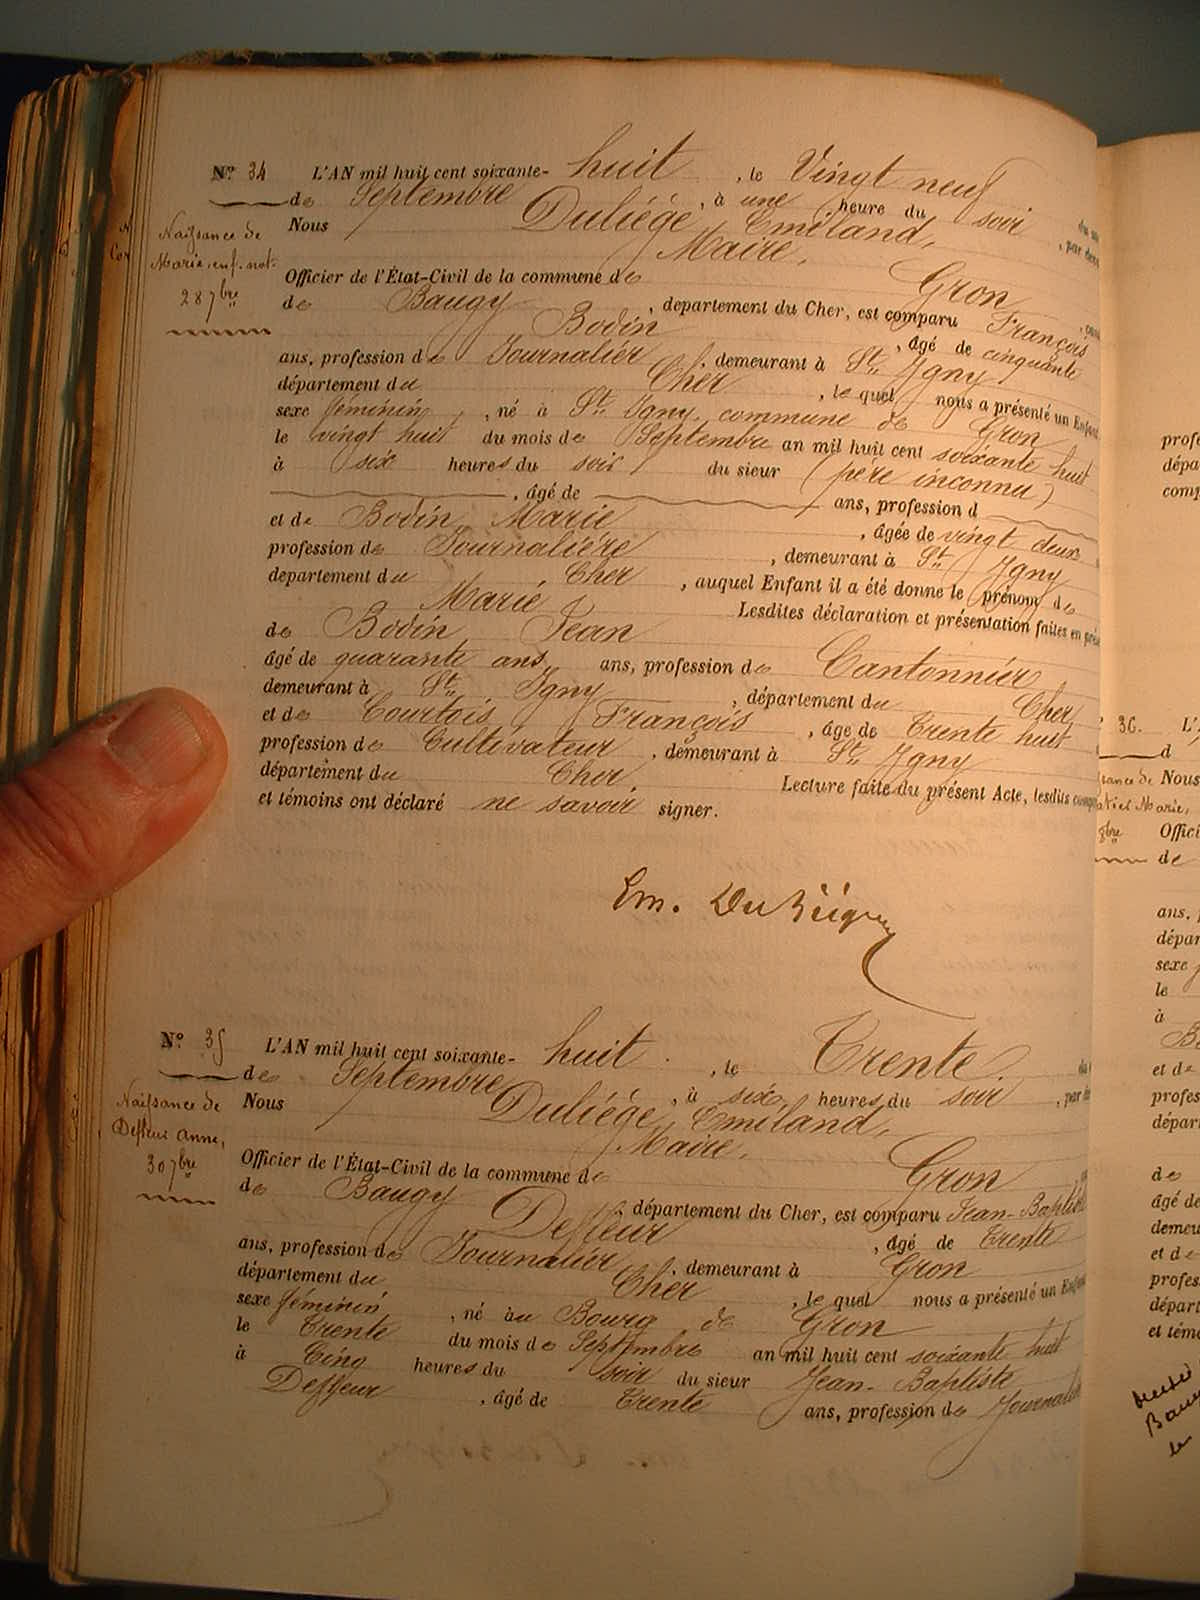 N° 34 L'AN mil huit cent soixante- huit , le Vingt neuf
de Septembre , à une heure du soir
Nous Duliége Emiland, , par dev
Maire,
Naissance de
Marie, enf. nat.
28 7bre
Officier de l'État-Civil de la commune de Gron
de Baugy , département du Cher, est comparu François
Bodin , âgé de cinquante
ans, profession de Journaliér , demeurant à St. Igny
département du Cher , le quel nous a présenté un Enfant
sexe féminin , né à St. Igny, commune de Gron
le vingt huit du mois de Septembre an mil huit cent soixante huit
à six heures du soir du sieur (pére inconnu)
, âgé de ans, profession d
et de Bodin, Marie , âgée de vingt deux
profession de Journaliére , demeurant à St. Igny
département du Cher , auquel Enfant il a été donné le prénom de
Marie Lesdites déclaration et présentation faites en pré
de Bodin, Jean
âgé de quarante ans, ans, profession de Cantonniér
demeurant à St. Igny , département du Cher,
et de Courtois, François , âge de trente huit
profession de Cultivateur , demeurant à St. Igny
département du Cher, Lecture faite du présent Acte, lesdits comp
et témoins ont déclaré ne savoir signer.
Em. Duliége
N° 35 L'AN mil huit cent soixante- huit , le Trente
de Septembre , à six heures du soir , par de
Nous Duliége, Emiland,
Maire,
Naissance de
Deffeur Anne,
30 7bre
Officier de l'État-Civil de la commune de Gron
de Baugy , département du Cher, est comparu Jean-Baptiste
Deffeur , âgé de trente
ans, profession de Journaliér , demeurant à Gron
département du Cher , le quel nous a présenté un Enfant
sexe féminin , né au Bourg de Gron
le trente du mois de Septembre an mil huit cent soixante huit
à Cinq heures du soir du sieur Jean-Baptiste
Deffeur , âgé de trente ans, profession de Journaliér
36. L'
d
Nous
Marie,
Offici
de
ans,
dépar
sexe
le
à
et de
profes
dépar
de
âgé de
demeu
et de
profes
départ
et tém
profe
dépa
comp